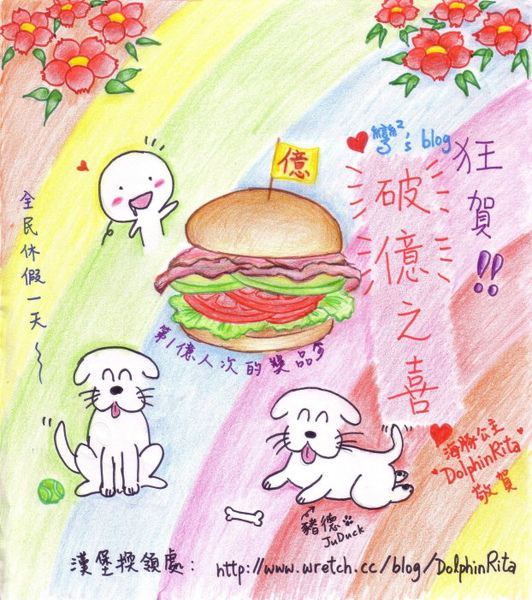 狂賀!!
彎彎's blog
破億之喜
億
全民休假一天~
第1億人次的獎品
海豚公主
DolphinRita
敬賀
豬德
JuDuck
漢堡換領處: http://www.wretch.cc/blog/DolphinRita